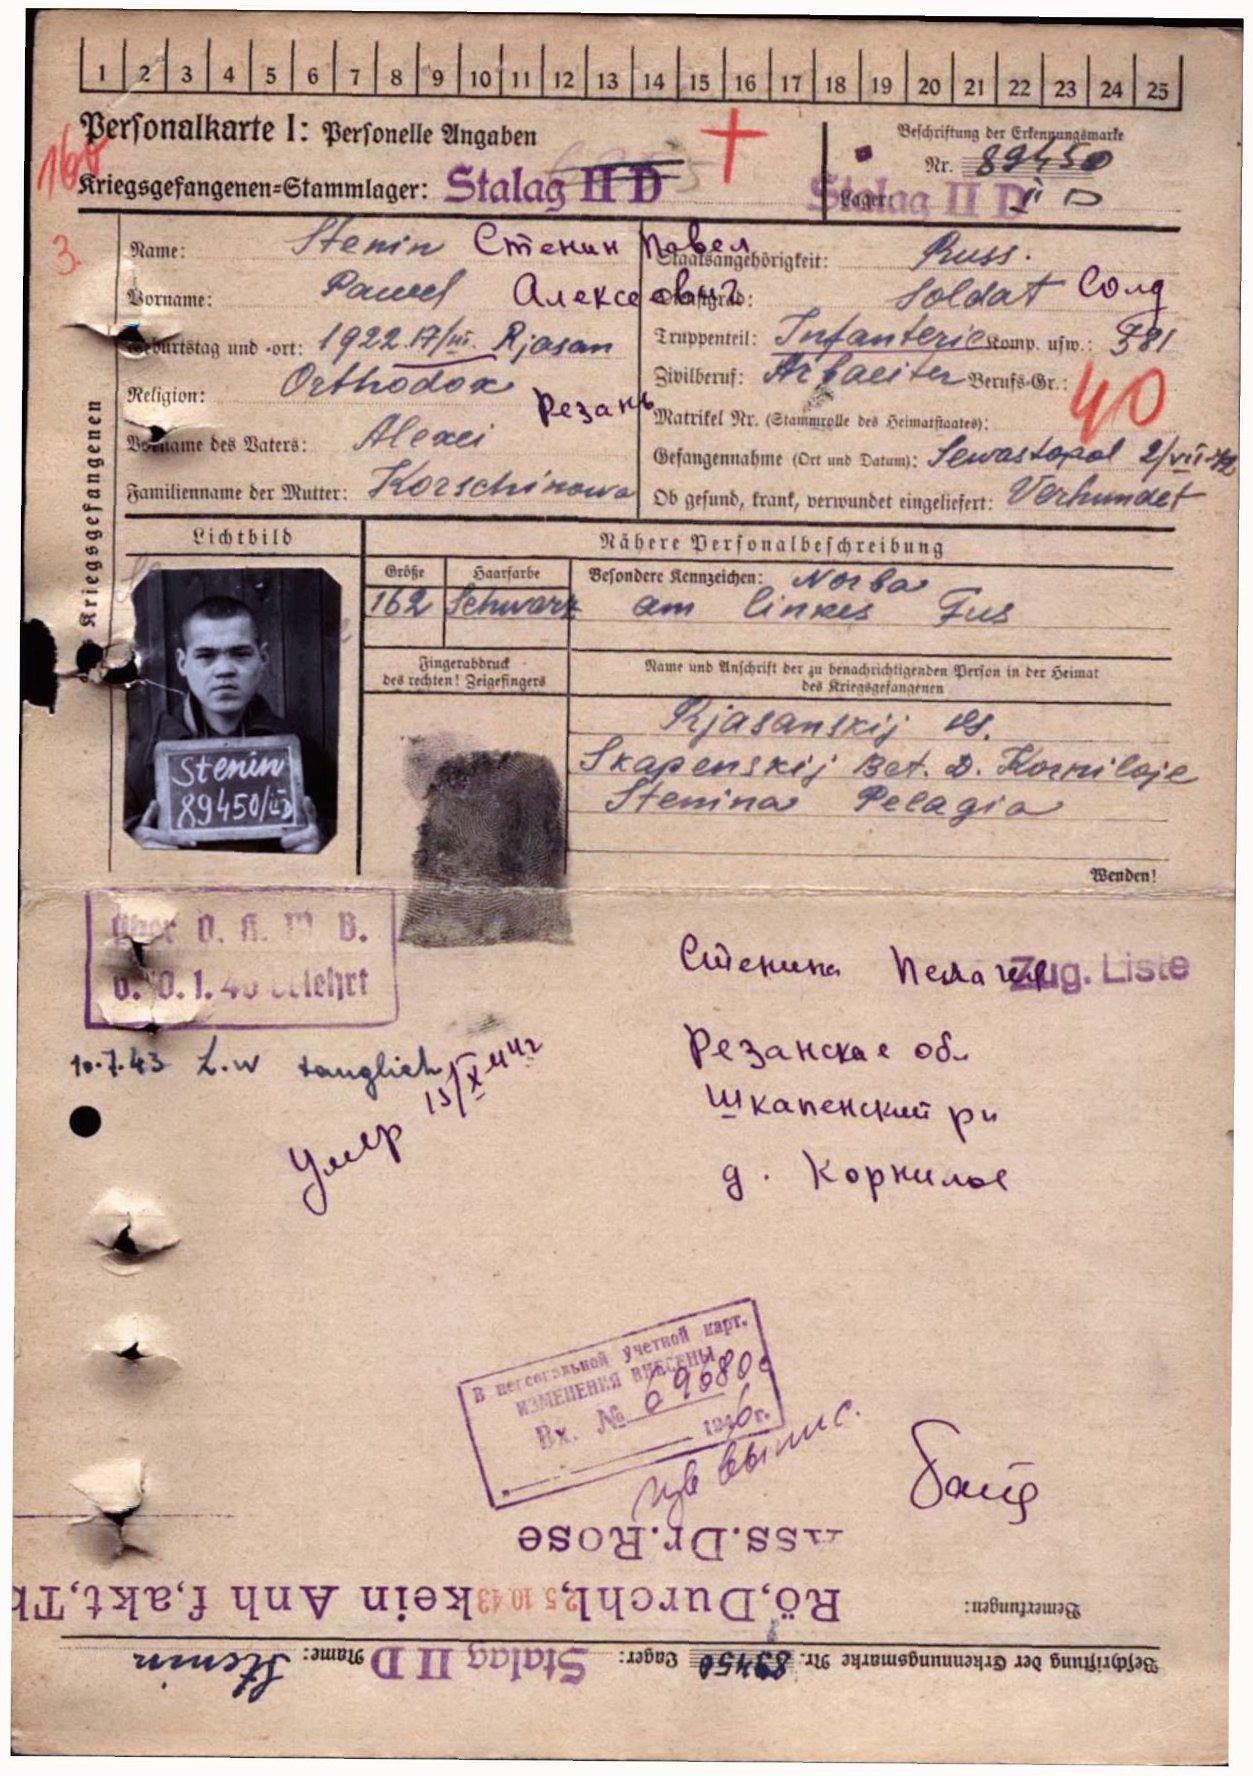 1 2 3 4 5 6 7 8 9 10 11 12 13 14 15 16 17 18 19 20 21 22 23 24 25
Personalkarte I: Personelle Angaben
Beschriftung der Erkennungsmarke
Nr. 89450
Kriegsgefangenen=Stammlager: Stalag II D
Lager: Stalag II D II D
3.
Name: Stenin Стенин Павел
Staatsangehörigkeit: Russ.
Vorname: Pawel Алексеевич
Dienstgrad: Soldat Солд
Geburtstag und -ort: 1922.17/III. Rjasan
Truppenteil: Infanterie Komp. usw.: 381
Religion: Orthodox Резань
Zivilberuf: Arbaeiter Berufs-Gr.: 40
Matrikel Nr. (Stammrolle des Heimatstaates):
Vorname des Vaters: Alexei
Gefangennahme (Ort und Datum): Sewastopol 2/VII-42
Familienname der Mutter: Korschinowa
Ob gesund, krank, verwundet eingeliefert: Verhundet
Kriegsgefangenen
Lichtbild
Nähere Personalbeschreibung
Größe Haarfarbe Besondere Kennzeichen: Norba
162 Schwarz am linkes Fus
Fingerabdruck
des rechten! Zeigefingers
Name und Anschrift der zu benachrichtigenden Person in der Heimat
des Kriegsgefangenen
Rjasanskij
Skapenskij Bet. D. Korniloje
Stenina Pelagia
Stenin
89450/IID
Wenden!
Стенина Пелагия
Zug. Liste
10.7.43 L.w tauglich
Умер 15/X 44г
Резанская об.
Шкапенский рн
д. Корнилое
В персональной учетной карт.
ИЗМЕНЕНИЯ ВНЕСЕНЫ
Вх. №
1946г.
Ass.Dr.Rose
Rö,Durchl, 25 10 43 kein Anh f,akt,Tb
Bemerkungen:
Beschriftung der Erkennungsmarke Nr. 89450 Lager: Stalag II D Name: Stenin